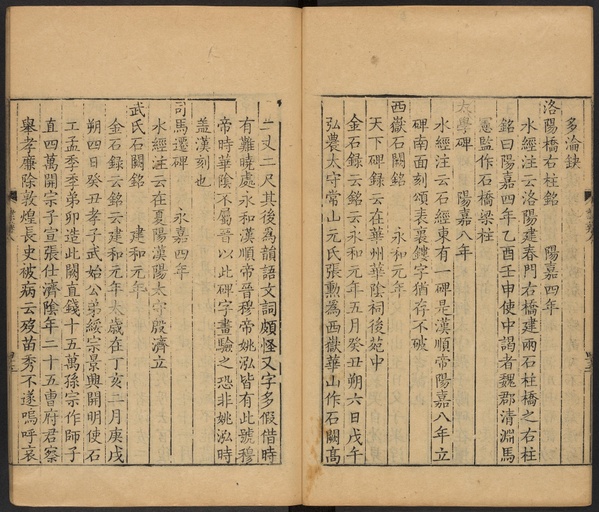 多淪缺
洛陽橋右柱銘　陽嘉四年
水經注云洛陽建春門右橋建兩石柱橋之右柱
銘曰陽嘉四年乙酉壬申使中謁者魏郡清淵馬
憲監作石橋梁柱
太學碑　陽嘉八年
水經注云石經東有一碑是漢順帝陽嘉八年立
碑南面刻頌表裏鏤字猶存不破
西嶽石闕銘　永和元年
天下碑錄云在華州華陰祠後苑中
金石錄云銘云永和元年五月癸丑朔六日戊午
弘農太守常山元氏張勲為西嶽華山作石闕高
二丈二尺其後為韻語文詞頗怪又字多假借時
有難曉處永和漢順帝晉穆帝姚泓皆有此號穆
帝時華陰不屬晉以此碑字畫驗之恐非姚泓時
蓋漢刻也
司馬遷碑　永嘉四年
水經注云在夏陽漢陽太守殷濟立
武氏石闕銘　建和元年
金石錄云銘云建和元年太歲在丁亥二月庚戌
朔四日癸丑孝子武始公弟綏宗景興開明使石
工孟季季弟卯造此闕直錢十五萬孫宗作師子
直四萬開宗子宣張仕濟陰年二十五曹府君察
舉孝廉除敦煌長史被病云歿苗秀不遂嗚呼哀